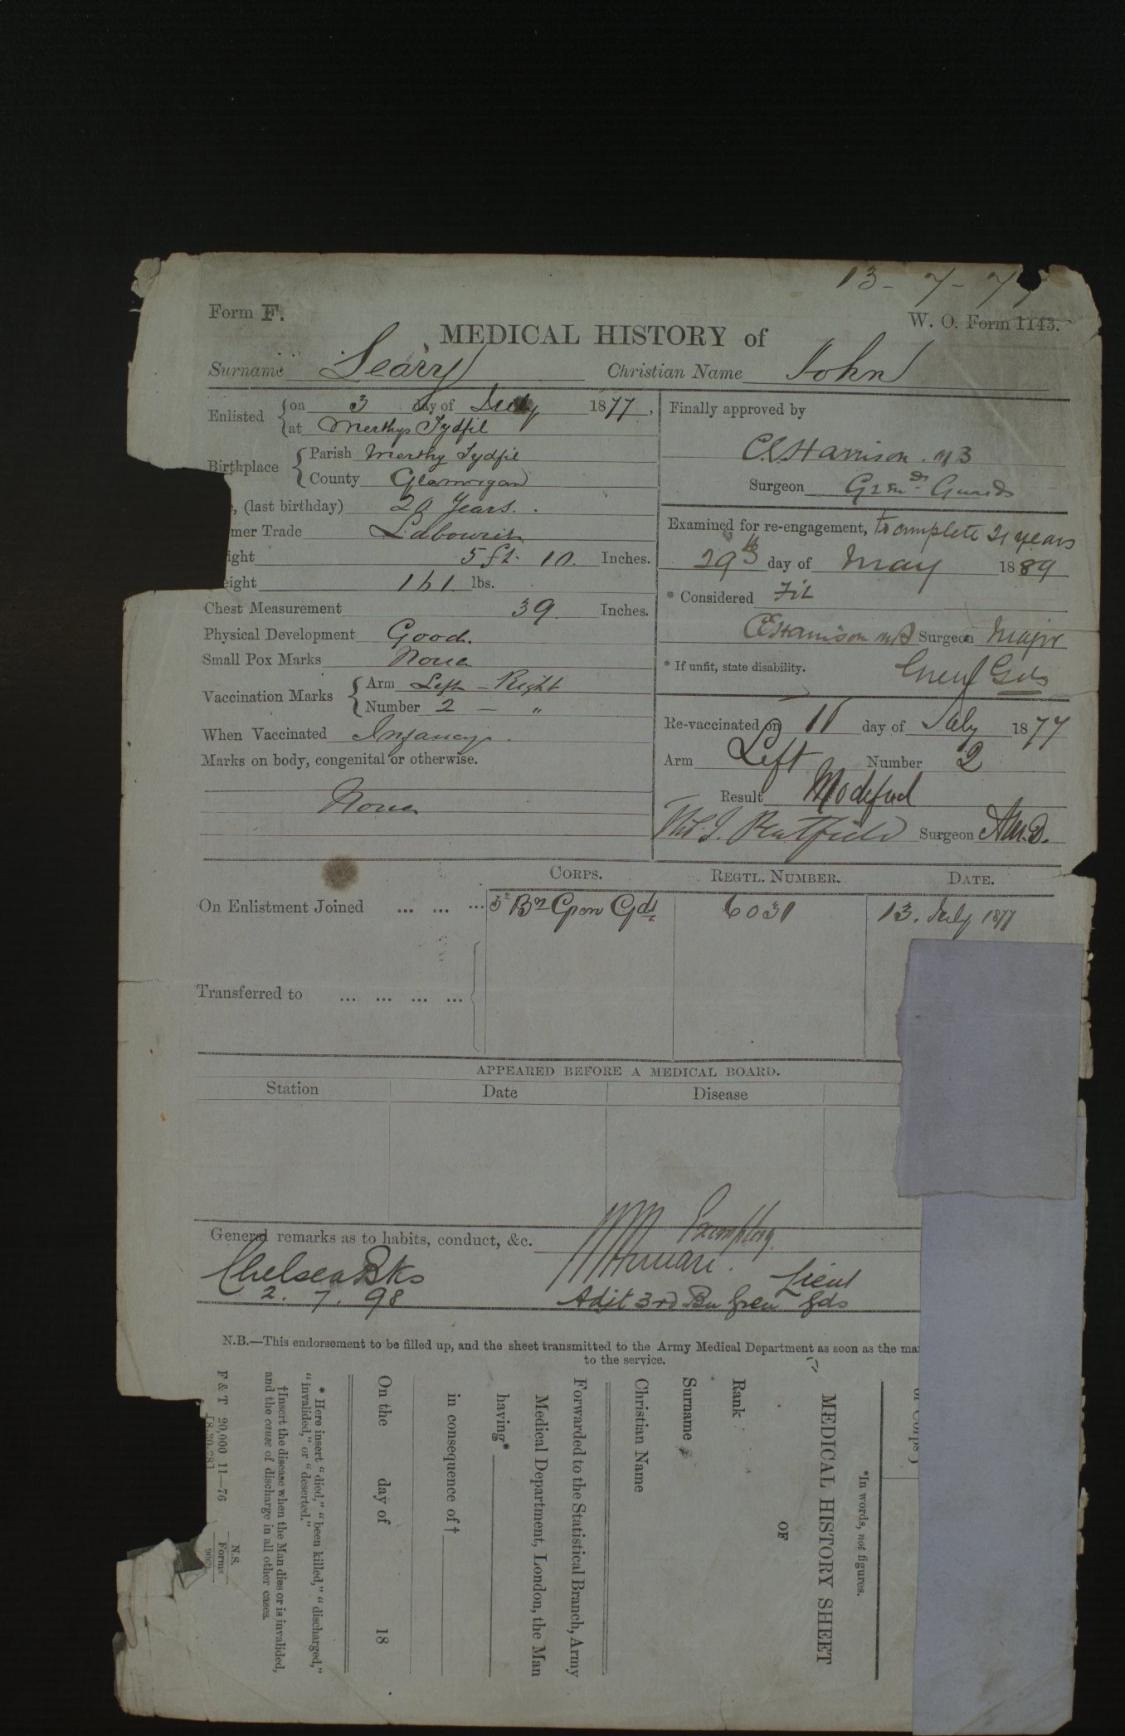 13 - 7 - 77
Form F.
W. O. Form 1143.
MEDICAL HISTORY of
Surname Leary Christian Name John
Enlisted {on 3 day of July 1877,
at Merthyr Tydfil
Birthplace { Parish Merthy Tydfil
County Glamorgan
, (last birthday) 20 Years.
mer Trade Labourer
ight 5 ft. 10. Inches.
eight 161 lbs.
Chest Measurement 39 Inches.
Physical Development Good.
Small Pox Marks None
Vaccination Marks { Arm Left - Right
Number 2 — "
When Vaccinated Infancy.
Marks on body, congenital or otherwise.
None
Finally approved by
Harrison. MB
Surgeon Gren. Guards
Examined for re-engagement, to complete 21 years
29th day of May 1889
* Considered Fit
Harrison MB Surgeon Major
* If unfit, state disability.
Gren Gds
Re-vaccinated on 11 day of July 1877
Arm Left Number 2
Result Modified
Surgeon A.M.D.
CORPS. REGTL. NUMBER. DATE.
On Enlistment Joined ... ... ... Bn Gren Gds 6031 13. July 1877
Transferred to ... ... ... ...
APPEARED BEFORE A MEDICAL BOARD.
Station Date Disease
General remarks as to habits, conduct, &c.
Chelsea Bks
2. 7. 98
Lieut
Adjt 3rd Bn Gren Gds
N.B.—This endorsement to be filled up, and the sheet transmitted to the Army Medical Department as soon as the ma
to the service.
of Corps)
*In words, not figures.
MEDICAL HISTORY SHEET
OF
Rank
Surname
Christian Name
Forwarded to the Statistical Branch, Army
Medical Department, London, the Man
having*
in consequence of †
On the day of 18
* Here insert "died," "been killed," "discharged,"
"invalided," or "deserted."
†Insert the disease when the Man dies or is invalided,
and the cause of discharge in all other cases.
P & T 20,000 11—76
N.S.
Forms